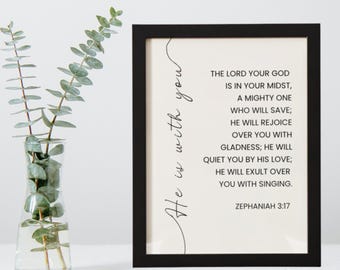 He is with you
THE LORD YOUR GOD
IS IN YOUR MIDST,
A MIGHTY ONE
WHO WILL SAVE;
HE WILL REJOICE
OVER YOU WITH
GLADNESS; HE WILL
QUIET YOU BY HIS LOVE;
HE WILL EXULT OVER
YOU WITH SINGING.
ZEPHANIAH 3:17